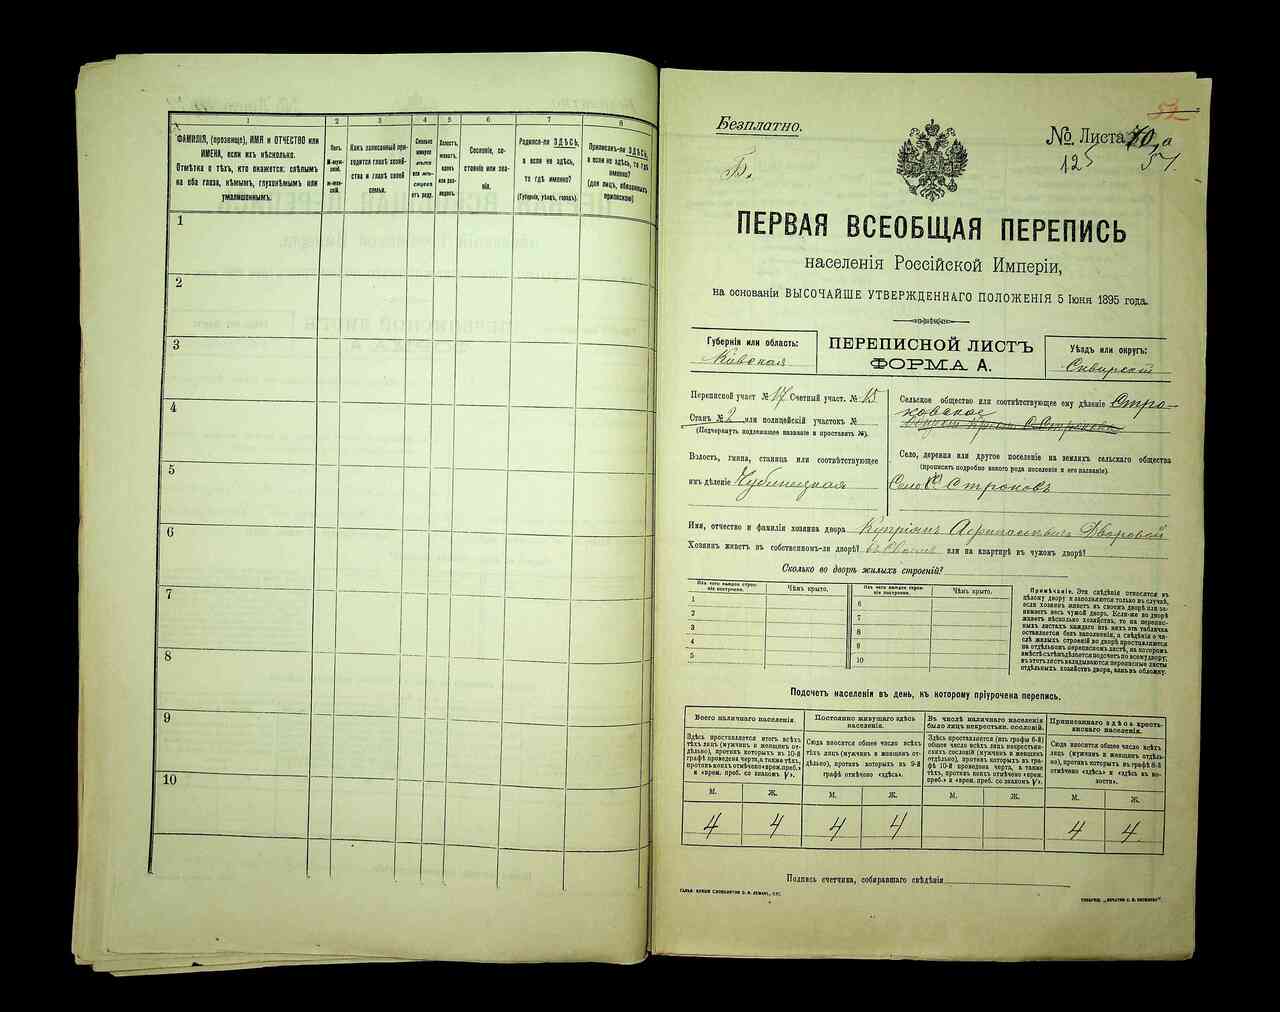 1 2 3 4 5 6 7 8
ФАМИЛІЯ, (прозвище), ИМЯ и ОТЧЕСТВО или
ИМЕНА, если ихъ нѣсколько.
Отмѣтка о тѣхъ, кто окажется: слѣпымъ
на оба глаза, нѣмымъ, глухонѣмымъ или
умалишеннымъ.
Полъ.
Какъ записанный при-
ходится главѣ хозяй-
ства и главѣ своей
семьи.
Сколько
Сословіе, со-
стояніе или зва-
ніе.
Родился-ли ЗДѢСЬ,
а если не здѣсь,
то гдѣ именно?
(Губернія, уѣздъ, городъ).
Приписанъ-ли ЗДѢСЬ,
а если не здѣсь, то гдѣ
именно?
(для лицъ, обязанныхъ
припискою)
1
2
3
4
5
6
7
8
9
10
Безплатно.
Б.
52
№ Листа
125
57.
ПЕРВАЯ ВСЕОБЩАЯ ПЕРЕПИСЬ
населенія Россійской Имперіи,
на основаніи ВЫСОЧАЙШЕ УТВЕРЖДЕННАГО ПОЛОЖЕНІЯ 5 Іюня 1895 года.
Губернія или область:
Кіевская
ПЕРЕПИСНОЙ ЛИСТЪ
ФОРМА А.
Уѣздъ или округъ:
Сквирскій
Переписной участ. № 17 Счетный участ. № 15
Станъ № 2 или полицейскій участокъ №
(Подчеркнуть подлежащее названіе и проставить №).
Волость, гмина, станица или соотвѣтствующее
имъ дѣленіе Чубинецкая
Сельское общество или соотвѣтствующее ему дѣленіе Стро-
ковское
Село, деревня или другое поселеніе на земляхъ сельскаго общества
(прописать подробно какого рода поселеніе и его названіе).
Село Строковъ
Имя, отчество и фамилія хозяина двора Купріянъ Афанасьевичъ Дворовой
Хозяинъ живетъ въ собственномъ-ли дворѣ? въ своемъ или на квартирѣ въ чужомъ дворѣ?
Сколько во дворѣ жилыхъ строеній?
Изъ чего каждое строе-
ніе построено.
Чѣмъ крыто.
Изъ чего каждое строе-
ніе построено.
Чѣмъ крыто.
1
2
3
4
5
6
7
8
9
10
Примѣчаніе. Эти свѣдѣнія относятся къ
цѣлому двору и заполняются только въ случаѣ,
если хозяинъ живетъ въ своемъ дворѣ или за-
нимаетъ весь чужой дворъ. Если-же во дворѣ
живетъ нѣсколько хозяйствъ, то на перепис-
ныхъ листахъ каждаго изъ нихъ эта табличка
оставляется безъ заполненія, а свѣдѣнія о чи-
слѣ жилыхъ строеній во дворѣ проставляются
на отдѣльномъ переписномъ листѣ, на которомъ
вмѣстѣ съ тѣмъ дѣлается подсчетъ по всему двору;
въ этотъ листъ вкладываются переписные листы
отдѣльныхъ хозяйствъ двора, какъ въ обложку.
Подсчетъ населенія въ день, къ которому пріурочена перепись.
Всего наличнаго населенія.
Здѣсь проставляется итогъ всѣхъ
тѣхъ лицъ (мужчинъ и женщинъ от-
дѣльно), противъ которыхъ въ 10-й
графѣ проведена черта, а также тѣхъ,
противъ коихъ отмѣчено «врем. преб.»
и «врем. преб. со знакомъ V».
Постоянно живущаго здѣсь
населенія.
Сюда вносится общее число всѣхъ
тѣхъ лицъ (мужчинъ и женщинъ от-
дѣльно), противъ которыхъ въ 9-й
графѣ отмѣчено «здѣсь».
Въ числѣ наличнаго населенія
было лицъ некрестьян. сословій.
Здѣсь проставляется (изъ графы 6-й)
общее число всѣхъ лицъ некрестьян-
скихъ сословій (мужчинъ и женщинъ
отдѣльно), противъ которыхъ въ гра-
фѣ 10-й проведена черта, а также
тѣхъ, противъ коихъ отмѣчено «врем.
преб.» и «врем. преб. со знакомъ V».
Приписаннаго здѣсь кресть-
янскаго населенія.
Сюда вносится общее число всѣхъ
лицъ (мужчинъ и женщинъ отдѣль-
но), противъ которыхъ въ графѣ 8-й
отмѣчено «здѣсь» и «здѣсь въ во-
лости».
М. Ж. М. Ж. М. Ж. М. Ж.
4 4 4 4 4 4
Подпись счетчика, собиравшаго свѣдѣнія